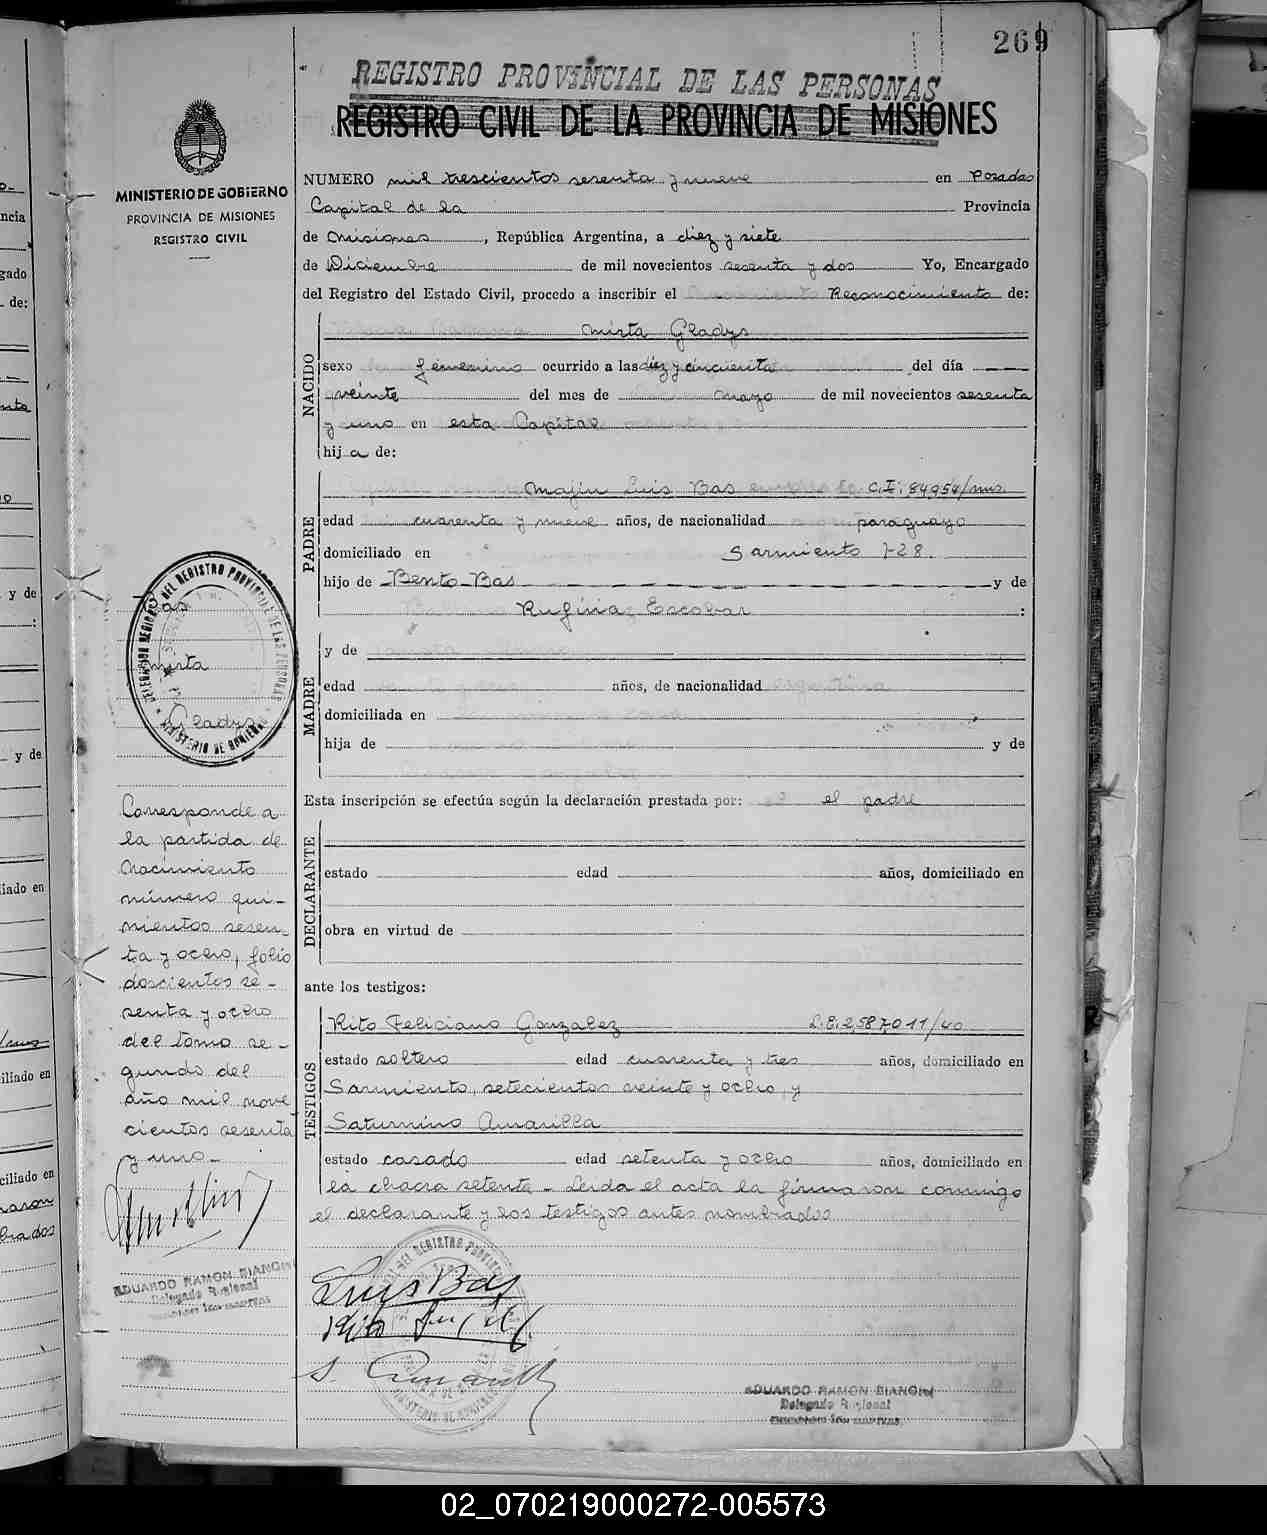 269
REGISTRO PROVINCIAL DE LAS PERSONAS
REGISTRO CIVIL DE LA PROVINCIA DE MISIONES
MINISTERIO DE GOBIERNO
PROVINCIA DE MISIONES
REGISTRO CIVIL
NUMERO mil trescientos sesenta y nueve en Posadas
Capital de la Provincia
de Misiones, República Argentina, a diez y siete
de Diciembre de mil novecientos sesenta y dos Yo, Encargado
del Registro del Estado Civil, procedo a inscribir el Reconocimiento de:
NACIDO
Mirta Gladys
sexo femenino ocurrido a las diez y cincuenta del día
veinte del mes de mayo de mil novecientos sesenta
y uno en esta Capital
hija de:
PADRE
Majin Luis Bas C.I. 84954/mis.
edad cuarenta y nueve años, de nacionalidad paraguayo
domiciliado en Sarmiento 728.
hijo de Bento Bas y de
Rufina Escobar :
MADRE
y de
edad años, de nacionalidad
domiciliada en
hija de y de
Esta inscripción se efectúa según la declaración prestada por: el padre
DECLARANTE
estado edad años, domiciliado en
obra en virtud de
ante los testigos:
TESTIGOS
Rito Feliciano Gonzalez L.E. 2.587.011/40
estado soltero edad cuarenta y tres años, domiciliado en
Sarmiento, setecientos veinte y ocho, y
Saturnino Amarilla
estado casado edad setenta y ocho años, domiciliado en
la chacra setenta - Leida el acta la firmaron conmigo
el declarante y los testigos antes nombrados
Luis Bas
S. Amarilla
EDUARDO RAMON BIANCHI
Delegado Regional
Bas
Mirta
Gladys
Corresponde a
la partida de
Nacimiento
número qui-
nientos sesen-
ta y ocho, folio
doscientos se-
senta y ocho
del tomo se-
gundo del
año mil nove
cientos sesenta
y uno-
EDUARDO RAMON BIANCHI
Delegado Regional
02_070219000272-005573